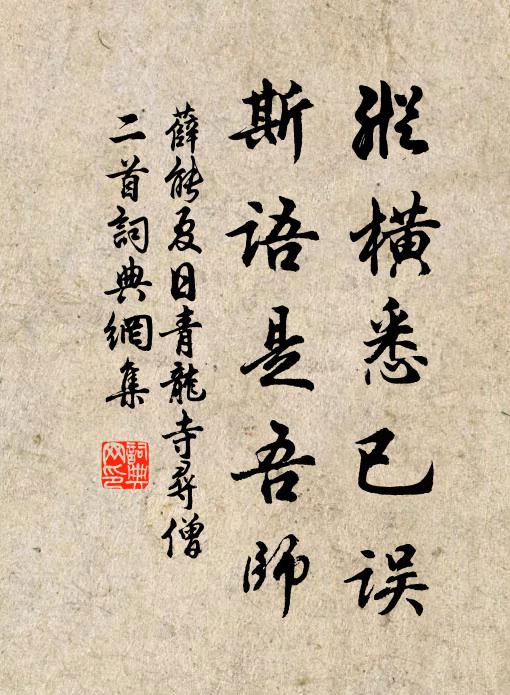 縱橫悉已误
斯语是吾師
薛能夏日青龍寺尋僧
二首詞典網集
詞典網印